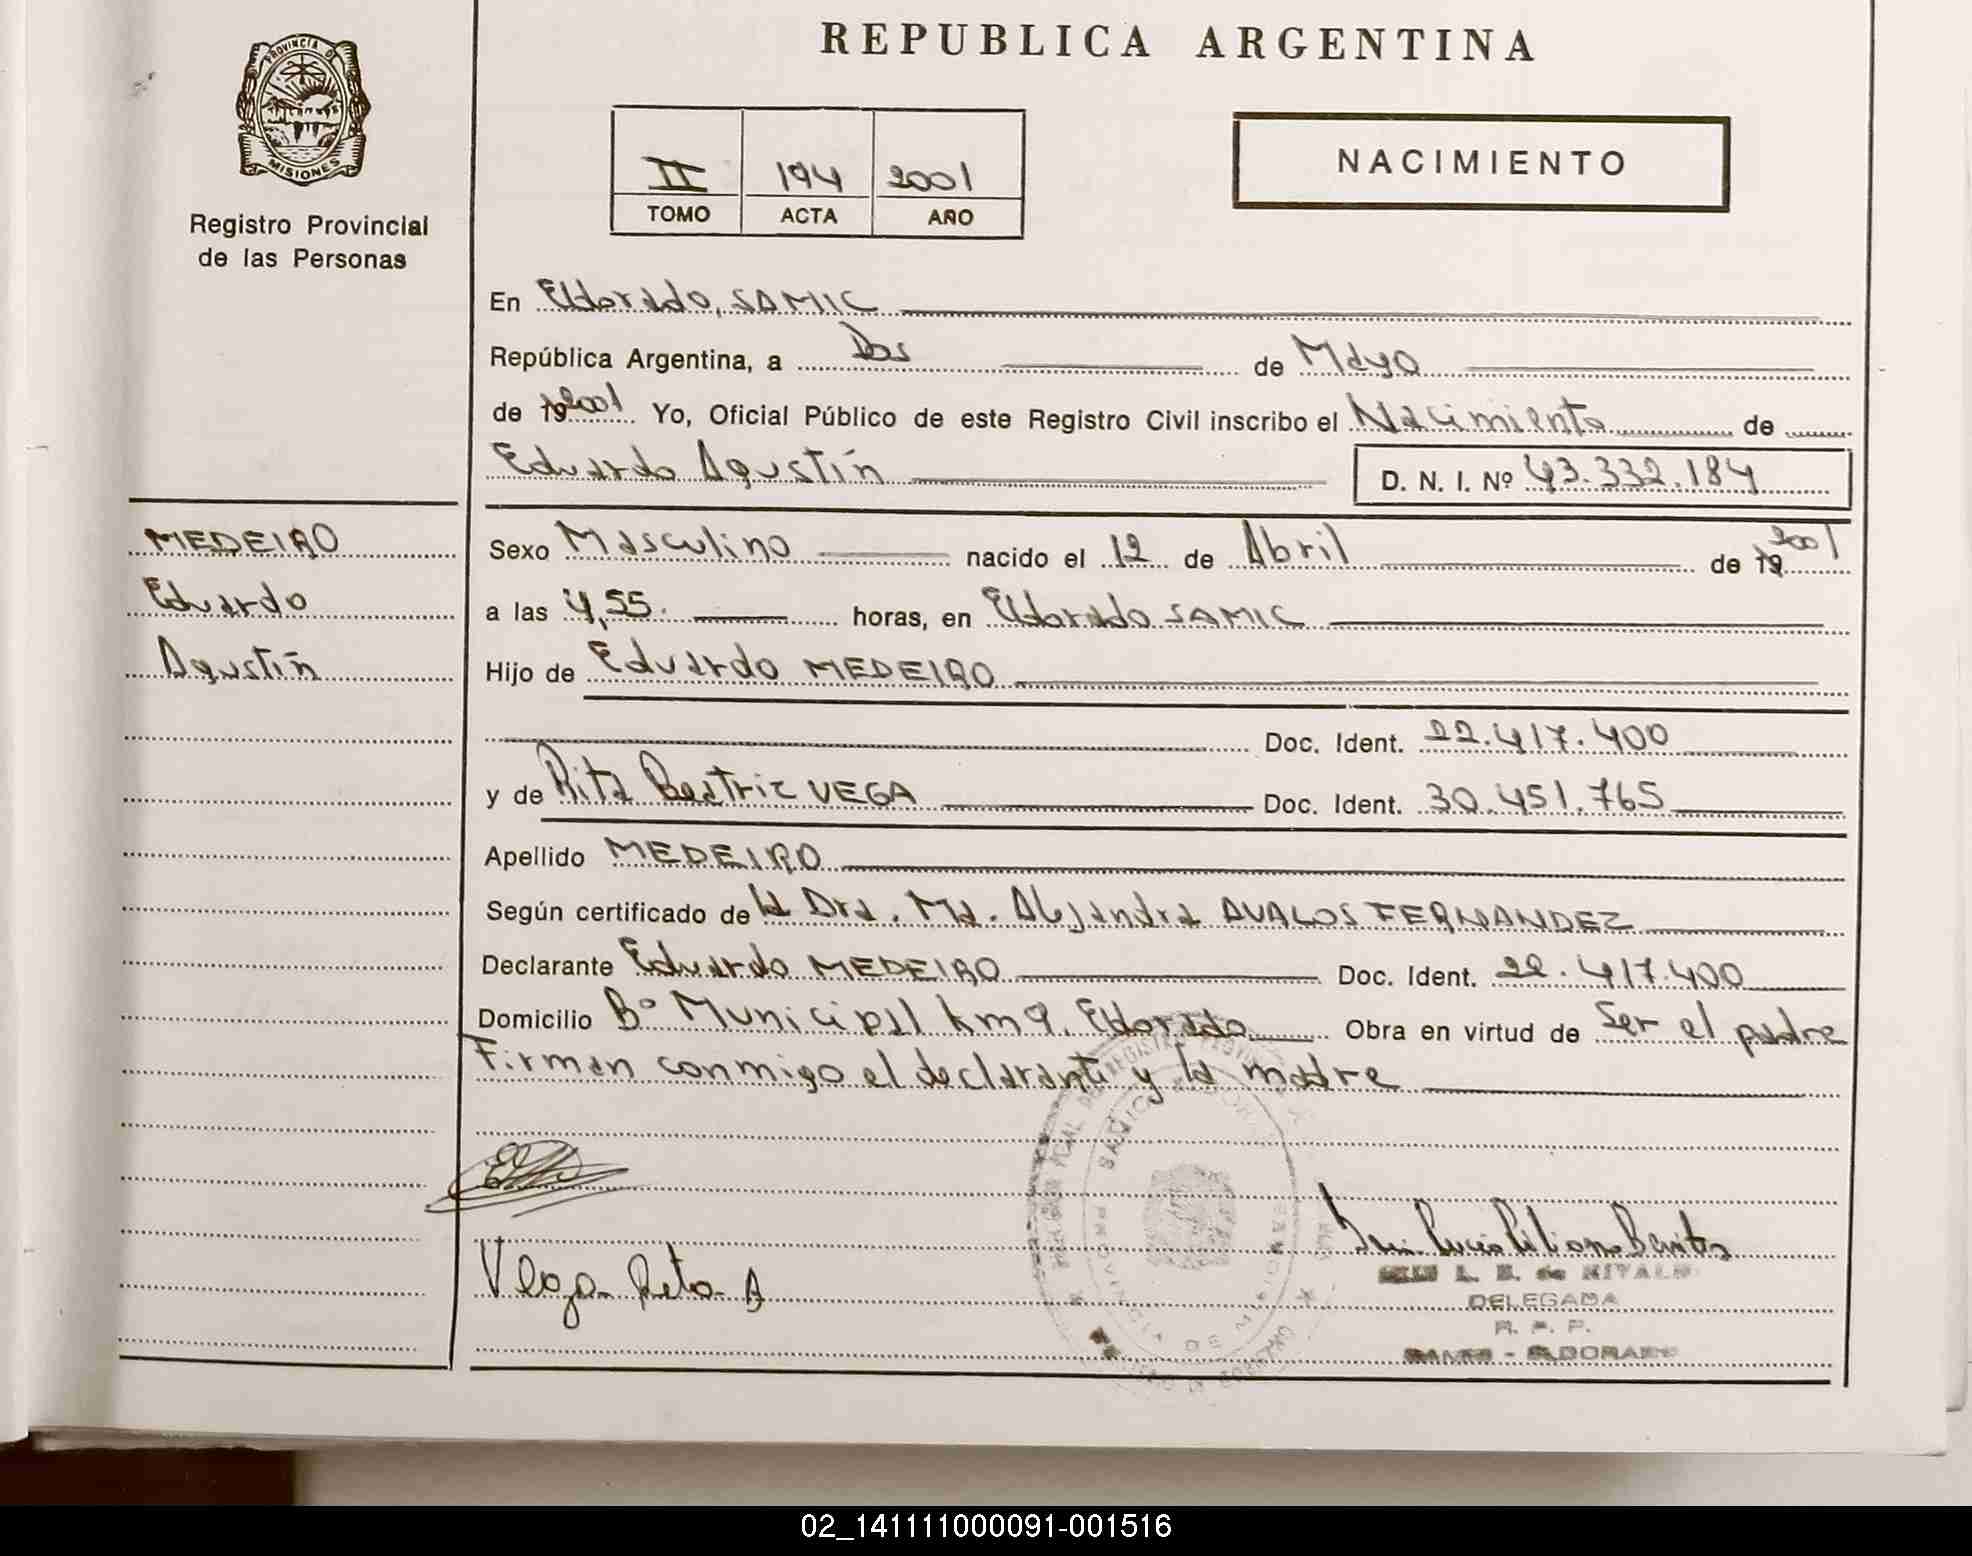 REPUBLICA ARGENTINA
PROVINCIA DE MISIONES
Registro Provincial
de las Personas
II 194 2001
TOMO ACTA AÑO
NACIMIENTO
En Eldorado, SAMIC
República Argentina, a Dos de Mayo
de 19 2001 Yo, Oficial Público de este Registro Civil inscribo el Nacimiento de
Eduardo Agustín D. N. I. Nº 43.332.184
MEDEIRO
Eduardo
Agustín
Sexo Masculino nacido el 12 de Abril de 19 2001
a las 4,55. horas, en Eldorado SAMIC
Hijo de Eduardo MEDEIRO
Doc. Ident. 22.417.400
y de Rita Beatriz VEGA Doc. Ident. 30.451.765
Apellido MEDEIRO
Según certificado de la Dra. Ma. Alejandra AVALOS FERNANDEZ
Declarante Eduardo MEDEIRO Doc. Ident. 22.417.400
Domicilio Bº Municipal km 9, Eldorado Obra en virtud de Ser el padre
Firman conmigo el declarante y la madre
Vega Rita B
L. B. de
DELEGADA
R. P. P.
- ELDORADO
PROVINCIA DE
02_141111000091-001516